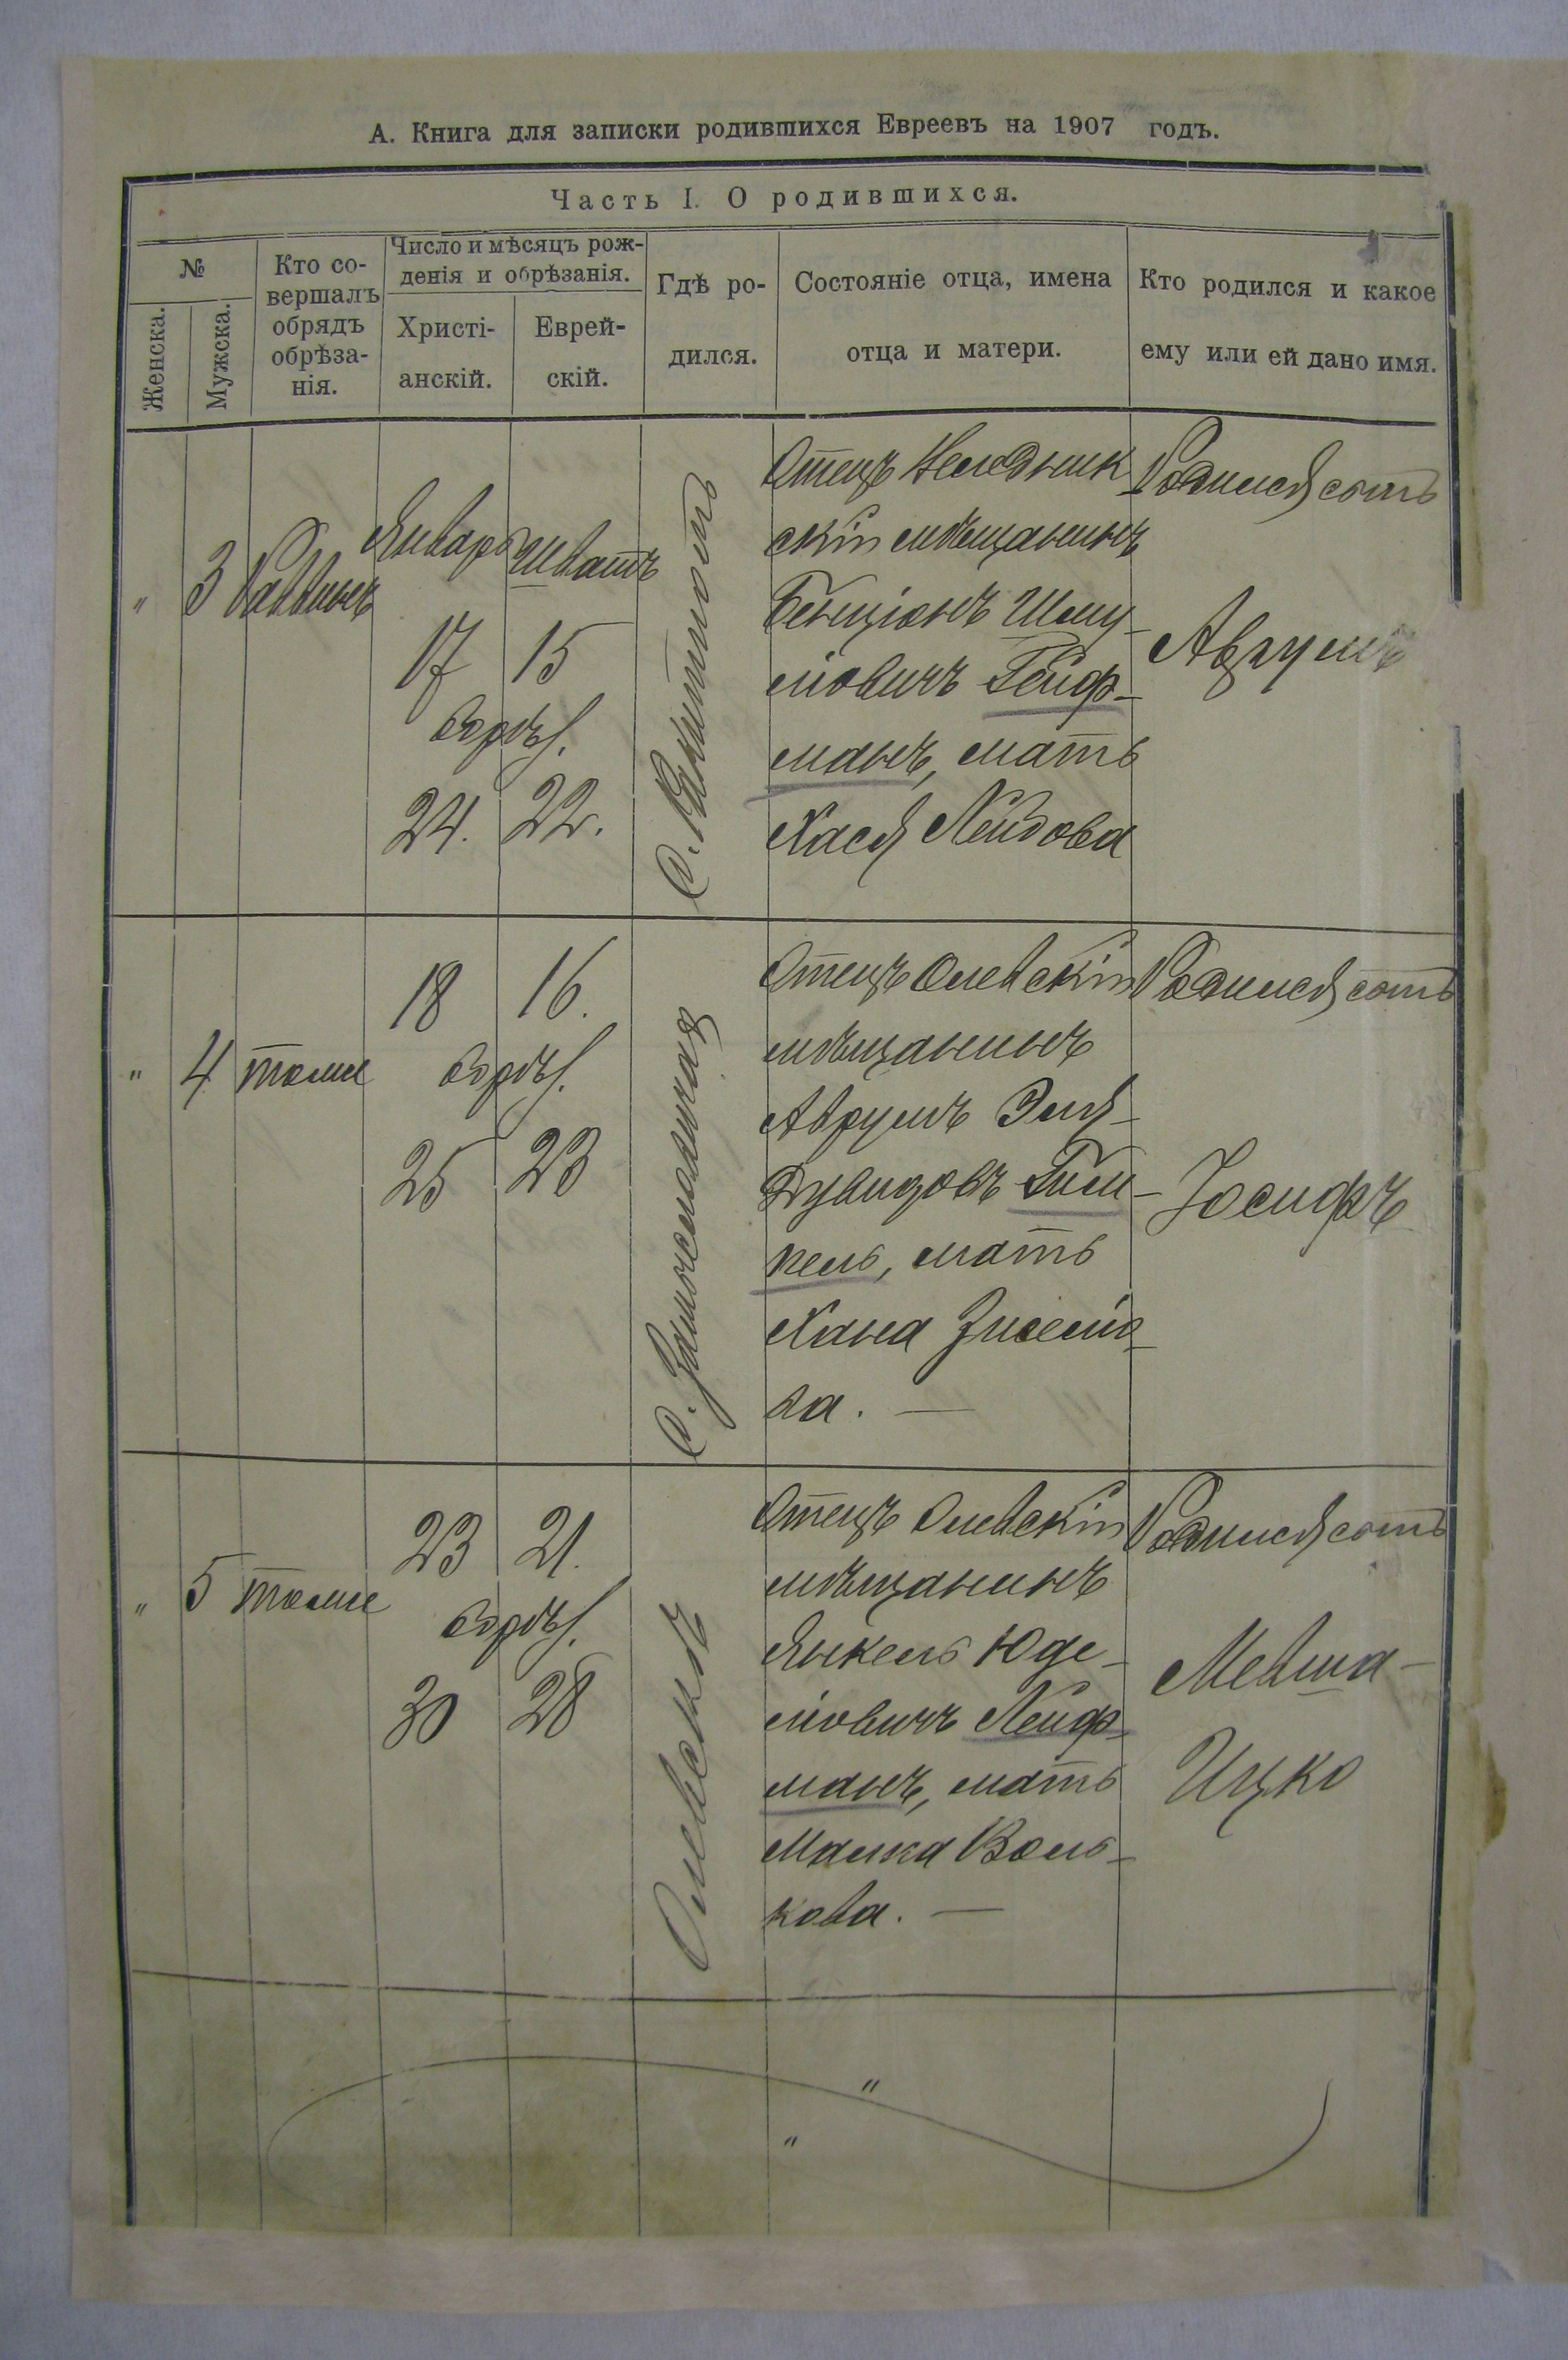 А. Книга для записки родившихся Евреевъ на 1907 годъ.
Часть I. О родившихся.
№
Женска.
Мужска.
Кто со-
вершалъ
обрядъ
обрѣза-
нія.
Число и мѣсяцъ рож-
денія и обрѣзанія.
Христі-
анскій.
Еврей-
скій.
Гдѣ ро-
дился.
Состояніе отца, имена
отца и матери.
Кто родился и какое
ему или ей дано имя.
"
3
Раввинъ
Январь
Шватъ
17
15
обрѣз.
24.
22.
Отецъ
скій мѣщанинъ
Бенціонъ Шму-
лiовичъ Гейф-
манъ, мать
Хася Лейбова
Родился сынъ
Аврумъ
"
4
тоже
18
16.
обрѣз.
25
23
Отецъ Олевскій
мѣщанинъ
Аврумъ Эля-
Дувидовъ
мать
Хана
ва. —
Родился сынъ
Іосифъ
"
5
тоже
23
21.
обрѣз.
30
28
Олевскъ
Отецъ Олевскій
мѣщанинъ
Янкель Юде-
лiовичъ Лейф-
манъ, мать
Малка Воль-
кова. —
Родился сынъ
Мевша-
Ицко
"
"